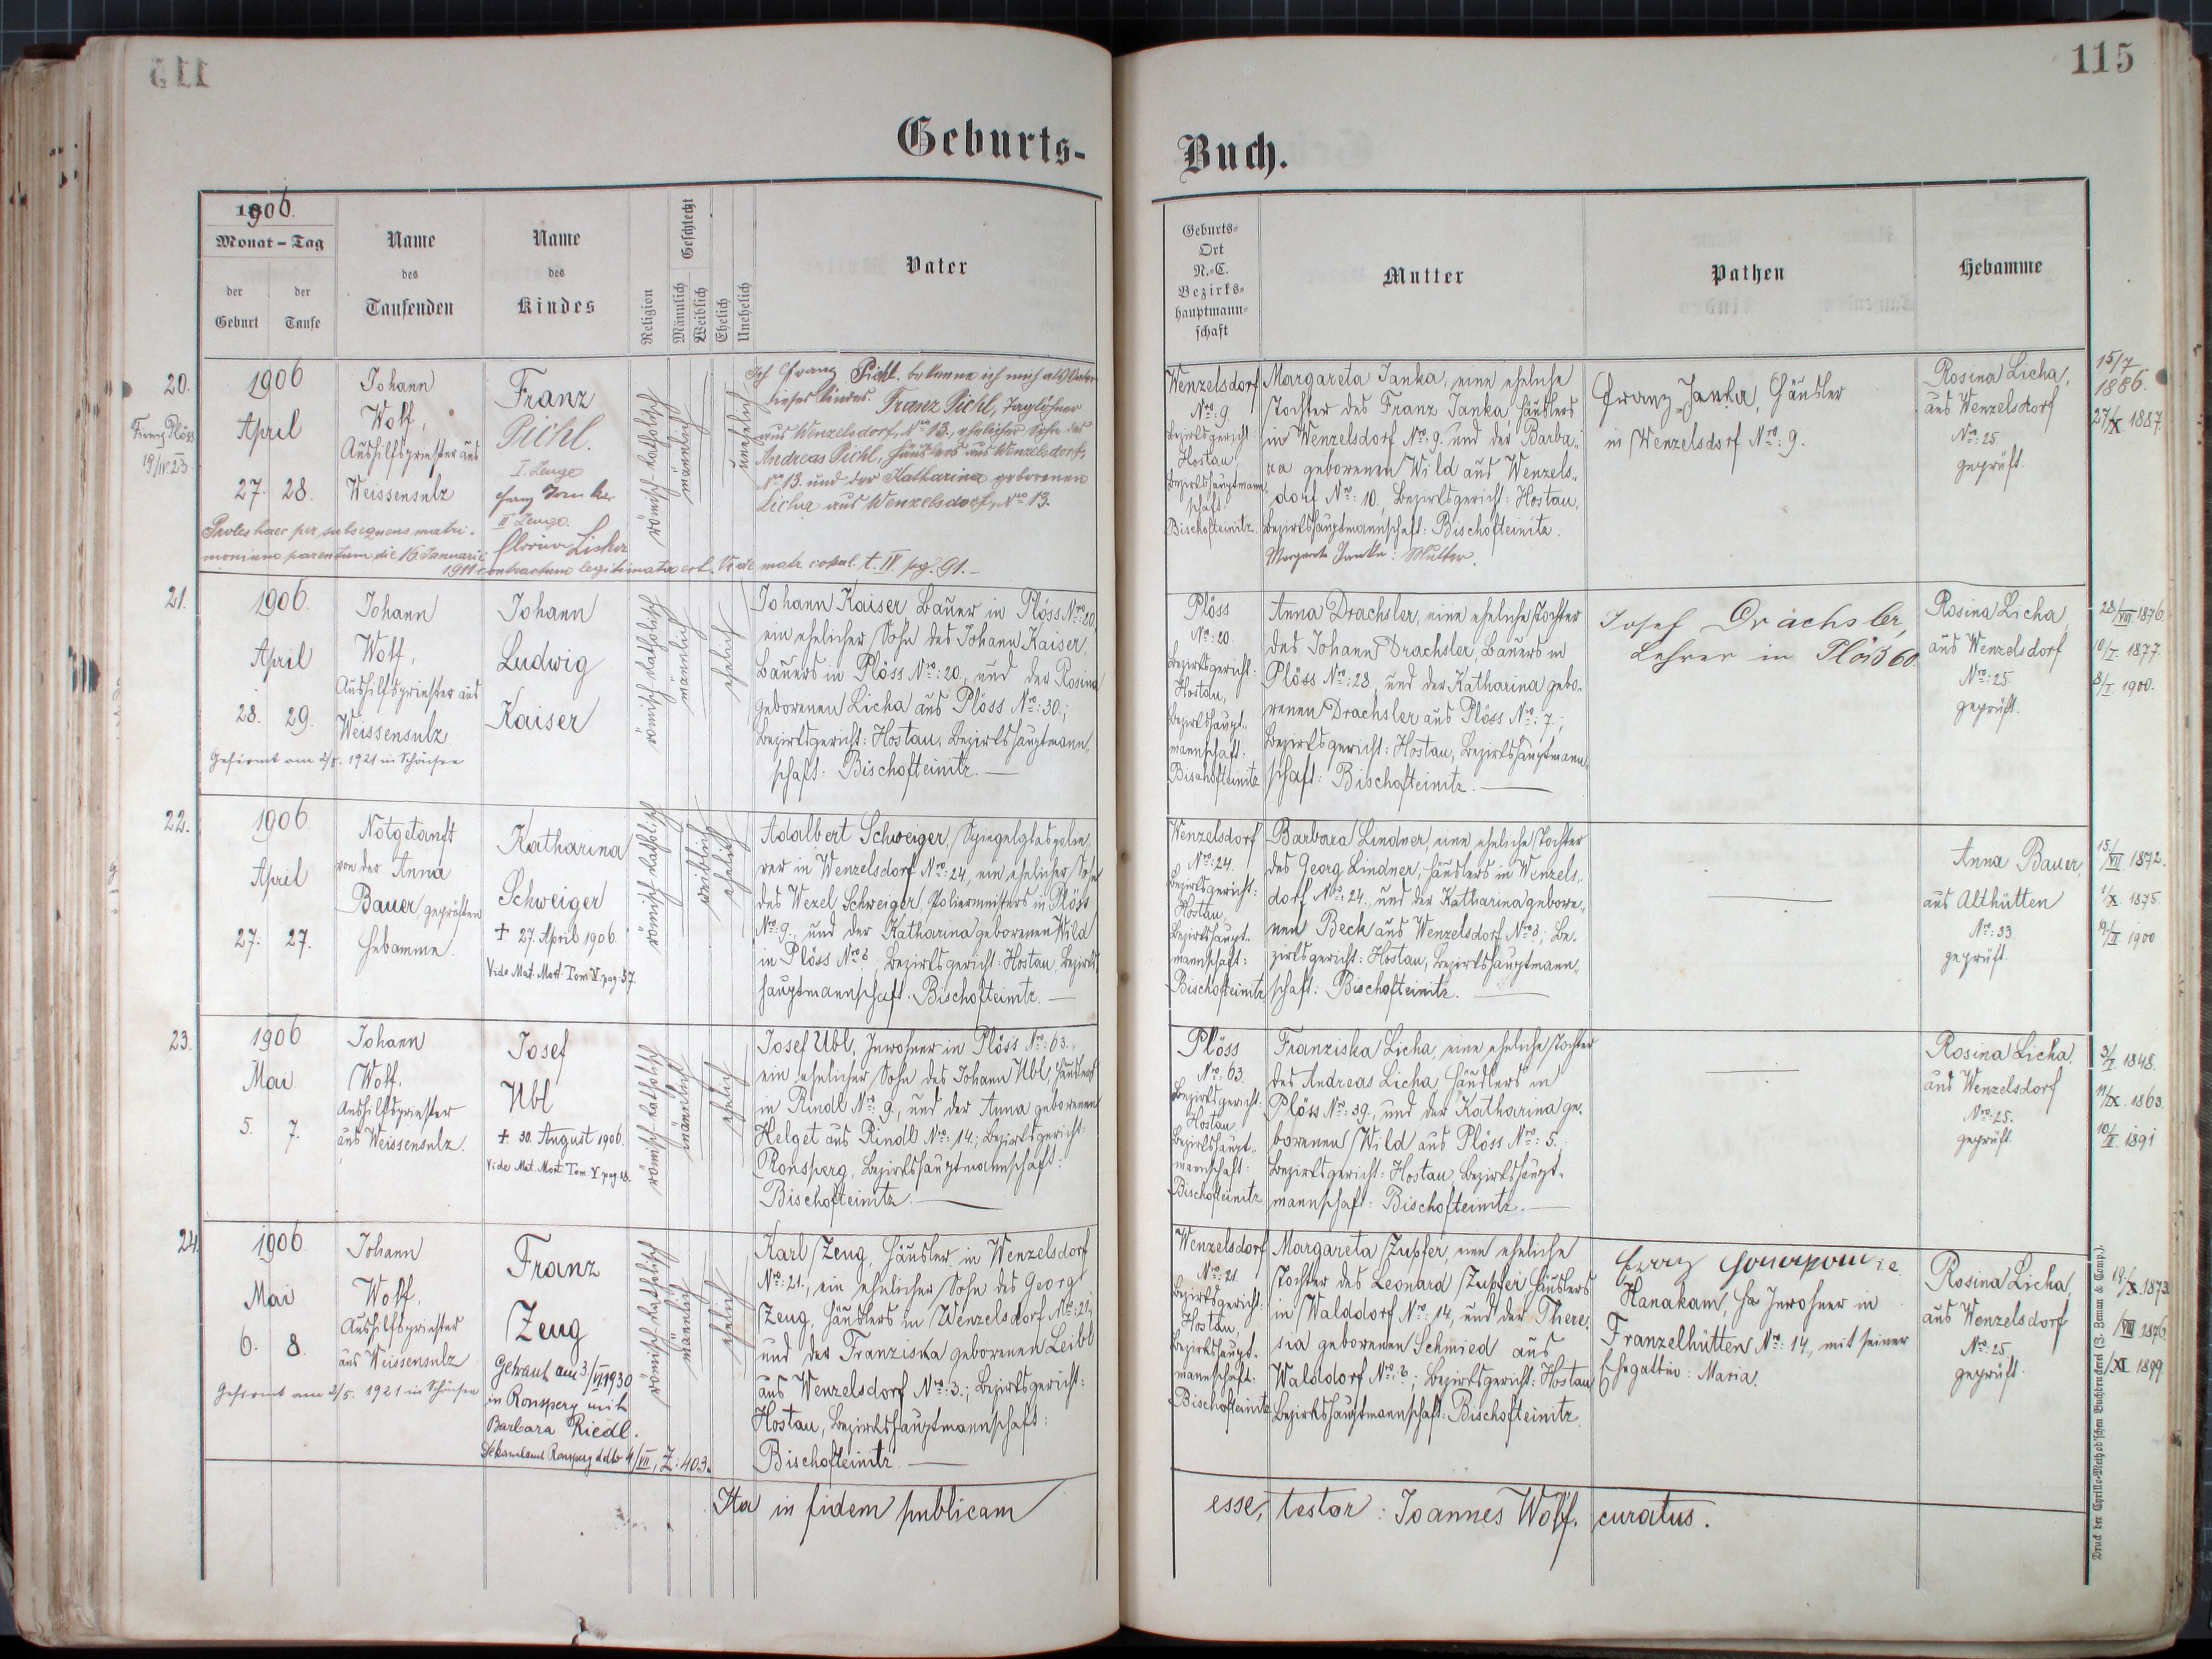 115
Geburts-
Buch.
1906.
Monat – Tag
der Geburt
der Taufe
Name des Taufenden
Name des Kindes
Religion
Geschlecht
Männlich
Weiblich
Ehelich
Unehelich
Vater
Geburts-
Ort
N.-C.
Bezirks-
hauptmann-
schaft
Mutter
Pathen
Hebamme
20.
Franz Plöss
19/IV.23
1906
April
27. 28.
Johann
Wolf,
Aushilfspriester aus
Weissensulz
Franz
Pichl.
I. Zeuge
Franz Janka
II Zeuge.
Florian
römisch katholisch
männlich
unehelich
Ich Franz Pichl bekenne ich mich als Vater
dieses Kindes. Franz Pichl, Taglöhner
aus Wenzelsdorf, Nro 13., ehelicher Sohn des
Andreas Pichl, Häuslers aus Wenzelsdorf,
Nro 13. und der Katharina geborenen
Licha aus Wenzelsdorf, Nro 13.
Proles haec per subsequens matri-
monium parentum die 16 Januarii
1911 contractum legitimata est. Vide matr. copul. t. IV. pag. 91.-
Wenzelsdorf
Nro: 9.
Bezirksgericht:
Hostau,
Bezirkshauptmann-
schaft:
Bischofteinitz.
Margareta Janka, eine eheliche
Tochter des Franz Janka, Häuslers
in Wenzelsdorf Nro: 9. und der Barba-
ra geborenen Wild aus Wenzels-
dorf Nro: 10, Bezirksgericht: Hostau,
Bezirkshauptmannschaft: Bischofteinitz.
Margareta Janka: Mutter.
Franz Janka, Häusler
in Wenzelsdorf Nro: 9.
Rosina Licha,
aus Wenzelsdorf
Nro: 25.
geprüft.
15/7
1886.
27/X. 1887.
21.
1906.
April
28. 29.
Gefirmt am 2/5. 1921 in Schönsee
Johann
Wolf,
Aushilfspriester aus
Weissensulz.
Johann
Ludwig
Kaiser
römisch katholisch
männlich
ehelich
Johann Kaiser Bauer in Plöss Nro: 20,
ein ehelicher Sohn des Johann Kaiser,
Bauers in Plöss Nro: 20, und der Rosina
geborenen Licha aus Plöss Nro: 30.;
Bezirksgericht: Hostau, Bezirkshauptmann-
schaft: Bischofteinitz. —
Plöss
Nro: 20.
Bezirksgericht:
Hostau,
Bezirkshaupt-
mannschaft:
Bischofteinitz
Anna Drachsler, eine eheliche Tochter
des Johann Drachsler, Bauers in
Plöss Nro: 28, und der Katharina gebo-
renen Drachsler aus Plöss Nro: 7;
Bezirksgericht: Hostau, Bezirkshauptmann-
schaft: Bischofteinitz. —
Josef Drachsler,
Lehrer in Plöss 60.
Rosina Licha
aus Wenzelsdorf
Nro: 25.
geprüft.
28/VIII 1876.
10/I. 1877.
8/I. 1900.
22.
1906.
April
27. 27.
Notgetauft
von der Anna
Bauer, geprüften
Hebamme.
Katharina
Schweiger
† 27. April 1906.
Vide Mat. Mort. Tom V. pag. 57.
römisch katholisch
weiblich
ehelich
Adalbert Schweiger, Spiegelglaspolie-
rer in Wenzelsdorf Nro: 24, ein ehelicher Sohn
des Wezel Schweiger, Poliermeisters in Plöss
Nro: 9., und der Katharina geborenen Wild
in Plöss Nro ?, Bezirksgericht: Hostau, Bezirks-
hauptmannschaft: Bischofteinitz. —
Wenzelsdorf
Nro: 24.
Bezirksgericht:
Hostau,
Bezirkshaupt-
mannschaft:
Bischofteinitz
Barbara Lindner, eine eheliche Tochter
des Georg Lindner, Häuslers in Wenzels-
dorf Nro: 24., und der Katharina gebore-
nen Beck aus Wenzelsdorf Nro ?; Be-
zirksgericht: Hostau, Bezirkshauptmann-
schaft: Bischofteinitz. —
—
Anna Bauer,
aus Althütten
Nro: 33.
geprüft.
15/VII 1872.
1/X. 1875.
19/II. 1900
23.
1906
Mai
5. 7.
Johann
Wolf.
Aushilfspriester
aus Weissensulz.
Josef
Ubl
† 30. August 1906.
Vide Mat. Mort Tom V. pag. 58.
römisch-katholisch
männlich
ehelich
Josef Ubl, Inwohner in Plöss Nro: 63.,
ein ehelicher Sohn des Johann Ubl, Häuslers
in Rindl Nro: 9., und der Anna geborenen
Helget aus Rindl Nro: 14.; Bezirksgericht:
Ronsperg, Bezirkshauptmannschaft:
Bischofteinitz. —
Plöss
Nro: 63.
Bezirksgericht:
Hostau
Bezirkshaupt-
mannschaft:
Bischofteinitz
Franziska Licha, eine eheliche Tochter
des Andreas Licha Häuslers in
Plöss Nro: 39., und der Katharina ge-
borenen Wild aus Plöss Nro: 5.
Bezirksgericht: Hostau, Bezirkshaupt-
mannschaft: Bischofteinitz. —
—
Rosina Licha,
aus Wenzelsdorf
Nro: 25.
geprüft.
3/I. 1848.
11/IX. 1863.
10/II. 1891
24.
1906
Mai
6. 8.
Gefirmt am 2/5. 1921 in Schönsee
Johann
Wolf.
Aushilfspriester
aus Weissensulz
Franz
Zeug
Getraut am 3/VI 1930
in Ronsperg mit
Barbara Riedl.
Dekanalamt Ronsperg ddto 4/VII, Z: 403.
römisch-katholisch
männlich
ehelich
Karl Zeug, Häusler in Wenzelsdorf
Nro: 21., ein ehelicher Sohn des Georg
Zeug, Häuslers in Wenzelsdorf Nro: 21,
und der Franziska geborenen Leibl
aus Wenzelsdorf Nro: 3.; Bezirksgericht:
Hostau, Bezirkshauptmannschaft:
Bischofteinitz —
Wenzelsdorf
Nro: 21.
Bezirksgericht:
Hostau,
Bezirkshaupt-
mannschaft:
Bischofteinitz
Margareta Zupfer, eine eheliche
Tochter des Leonard Zupfer Häuslers
in Walddorf Nro: 14, und der There-
sia geborenen Schmied aus
Walddorf Nro: ?; Bezirksgericht: Hostau
Bezirkshauptmannschaft: Bischofteinitz.
Franz
Hanakam, Inwohner in
Franzelhütten Nro: 14., mit seiner
Ehegattin: Maria.
Rosina Licha,
aus Wenzelsdorf
Nro: 25
geprüft.
19./X. 1873.
/VIII 1876.
/XI. 1899.
Ita in fidem publicam esse, testor: Joannes Wolf. curatus.
Druck der Cyrillo-Method'schen Buchdruckerei (J. Zeman & Comp.).